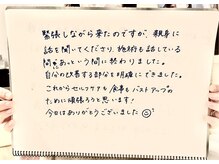 緊張しながら来たのですが、親身に
話を聞いてくださり、施術も話している
間にあっという間に終わりました。
自分の改善する部分を明確にできました。
これからセルフケアも食事もバストアップの
ために頑張ろうと思います！
今日はありがとうございました